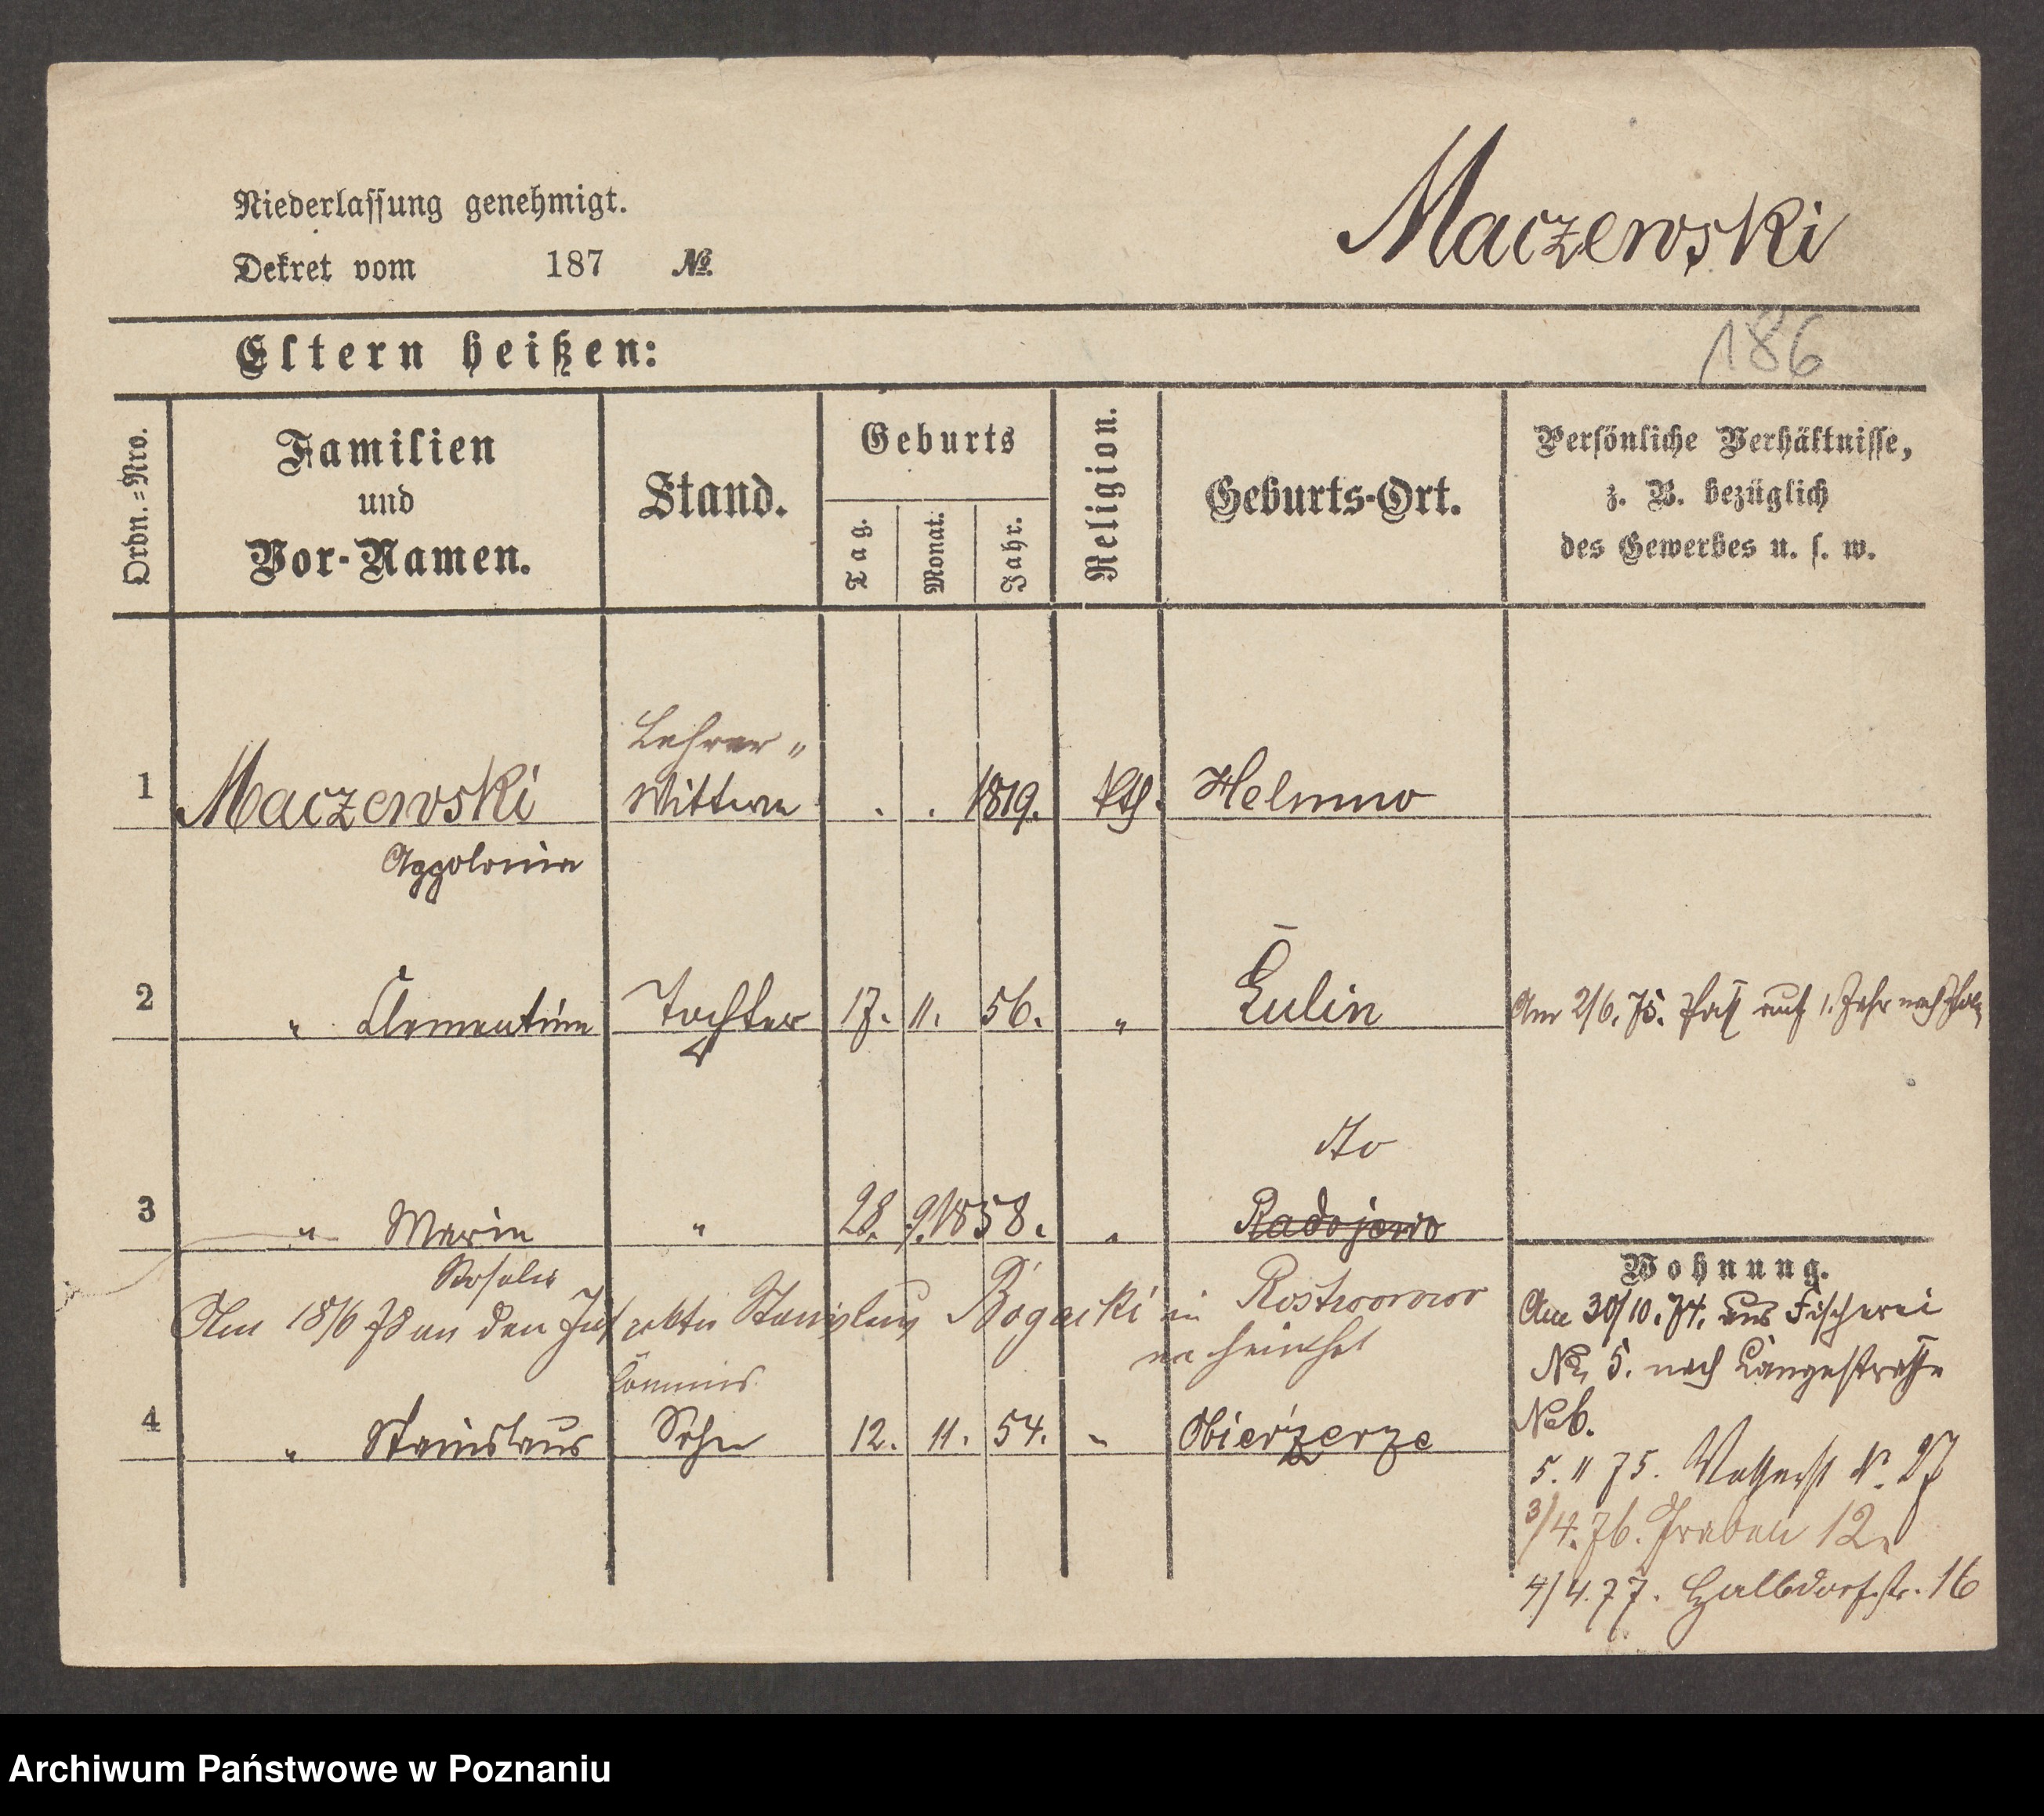 Niederlassung genehmigt.
Maczewski
Dekret vom 187 №
186
Eltern heißen:
Ordn.=Nro.
Familien
und
Vor-Namen.
Stand.
Geburts
Tag.
Monat.
Jahr.
Religion.
Geburts-Ort.
Persönliche Verhältnisse,
z. B. bezüglich
des Gewerbes u. s. w.
Lehrer "
1 Maczewski Wittwe . . 1819. kth. Helmno
Appolonia
2 " Clementine Tochter 17. 11. 56. " Lulin Am 2/6. 75. Paß auf 1. Jahr nach
dto
3 " Marie " 28. 9. 1858. " Radojewo
Rosalie
Wohnung.
Am 18/6 78 an den Stanislaus Bogacki in
verheirathet
Am 30/10. 74. aus Fischerei
№ 5. nach Langestraße
№ 6.
Commis
4 " Stanislaus Sohn 12. 11. 54. " Obierzerze
5. 11 75. N. 27
3/4. 76. Graben 12.
4/4. 77. Halbdorfstr. 16
Archiwum Państwowe w Poznaniu